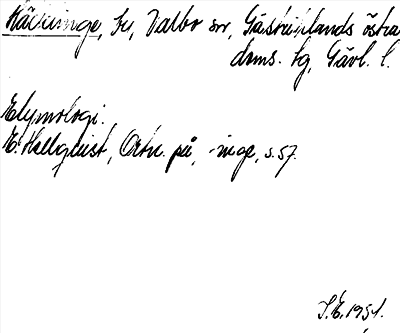 Käckinge, by, Valbo sn, Gästriklands östra
doms. tg, Gävl. l.
Etymologi.
E. Hellquist, Ortn. på -inge, s. 57.
S.E. 1951.